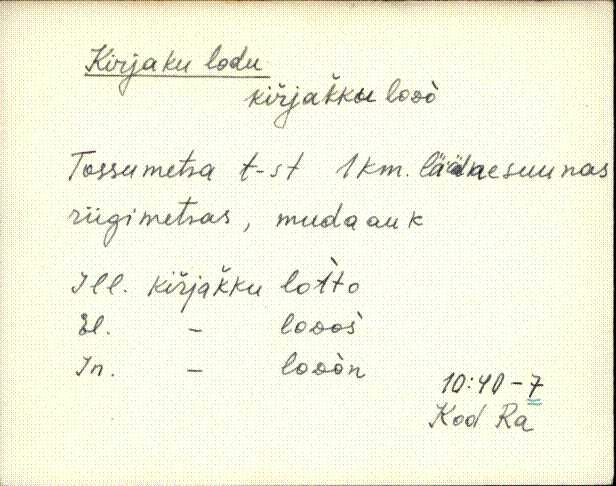 Kirjaku lodu
kiřjašku loɒò
Tossumetsa t-st 1 km. läänesuunas
riigimetsas, mudaauk
Ill. kiřjakku lotto
El. – loɒoš
In. – loɒòn
10:40-7
Kod Ra